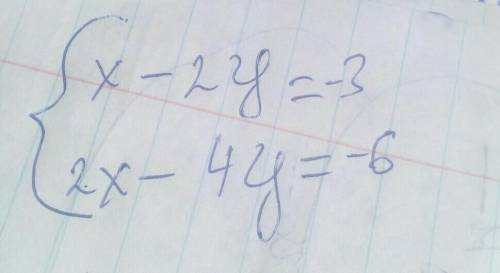 x - 2y = -3
2x - 4y = -6